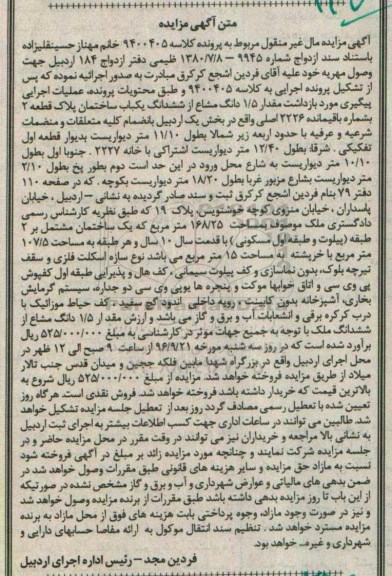 متن آگهی مزایده
آگهی مزایده مال غیر منقول مربوط به پرونده کلاسه ۹۴۰۰۴۰۵ خانم مهناز حسینقلیزاده
باستناد سند ازدواج شماره ۹۹۴۵ – ۱۳۸۰/۷/۸ تنظیمی دفتر ازدواج ۱۸۴ اردبیل جهت
وصول مهریه خود علیه آقای فردین اشجع کرکرق مبادرت به صدور اجرائیه نموده که پس
از تشکیل پرونده اجرایی به کلاسه ۹۴۰۰۴۰۵ و طبق محتویات پرونده، عملیات اجرایی
پیگیری مورد بازداشت مقدار ۱/۵ دانگ مشاع از ششدانگ یکباب ساختمان پلاک قطعه ۲
بشماره باقیمانده ۲۲۲۶ اصلی واقع در بخش یک اردبیل بانضمام کلیه متعلقات و منضمات
شرعیه و عرفیه با حدود اربعه زیر شمالا بطول ۱۱/۱۰ متر دیواریست بدیوار قطعه اول
تفکیکی . شرقا: بطول ۱۲/۴۰ متر دیواریست اشتراکی با خانه ۲۲۲۷ . جنوبا اول بطول
۱۰/۱۰ متر دیواریست به شارع محل ورود در این حد است دوم بطور پخ بطول ۲/۱۰
متر دیواریست بشارع مزبور غربا بطول ۱۸/۲۰ متر دیواریست بکوچه . که در صفحه ۱۱۰
دفتر ۷۹ بنام فردین اشجع کرکرق ثبت و سند صادر گردیده به نشانی – اردبیل ، خیابان
پاسداران ، خیابان منزوی کوچه خوشنویس، پلاک ۱۹ که طبق نظریه کارشناس رسمی
دادگستری ملک موصوف مساحت ۱۶۸/۲۵ متر مربع که یک ساختمان مشتمل بر ۲
طبقه (پیلوت و طبقه اول مسکونی ) با قدمت سال ۱۰ سال و هر طبقه به مساحت ۱۰۷/۵
متر مربع با خرپشته به مساحت ۱۵ متر مربع می باشد نوع سازه اسکلت فلزی و سقف
تیرچه بلوک، بدون نماسازی و کف پیلوت سیمانی ، کف هال و پذیرایی طبقه اول کفپوش
پی وی سی و اتاق خوابها موکت و پنجره ها یوپی وی سی دو جداره، سیستم گرمایش
بخاری، آشپزخانه بدون کابینت ، رویه داخلی اندود گچ سفید ، کف حیاط موزائیک با
درب کرکره برقی و انشعابات آب و برق و گاز می باشد و ارزش مقدار ۱/۵ دانگ مشاع از
ششدانگ ملک با توجه به جمیع جهات موثر در کارشناسی به مبلغ ۵۲۵/۰۰۰/۰۰۰ ریال
برآورد شده است که در روز سه شنبه مورخه ۹۶/۹/۲۱ از ساعت ۹ صبح الی ۱۲ ظهر در
محل اجرای اردبیل واقع در بزرگراه شهدا مابین فلکه ججین و میدان قدس جنب تالار
میلاد از طریق مزایده فروخته خواهد شد. مزایده از مبلغ ۵۲۵/۰۰۰/۰۰۰ ریال شروع به
بالاترین قیمت که خریدار داشته باشد فروخته خواهد شد. فروش نقدی است. هرگاه روز
تعیین شده با تعطیل رسمی مصادف گردد روز بعد از تعطیل جلسه مزایده تشکیل خواهد
شد. طالبین می توانند در ساعات اداری جهت کسب اطلاعات بیشتر به اجرای ثبت اردبیل
به نشانی بالا مراجعه و خریداران نیز می توانند در وقت مقرر در محل مزایده حاضر و در
جلسه مزایده شرکت نمایند و چنانچه مورد مزایده زائد بر مبلغ در آگهی فروخته شود
نسبت به مازاد حق مزایده و سایر هزینه های قانونی طبق مقررات وصول خواهد شد در
ضمن بدهی های مالیاتی و عوارض شهرداری و آب و برق و گاز مشخص نشده در صورتیکه
از این باب تا روز مزایده بدهی داشته باشد طبق مقررات از برنده مزایده وصول خواهد شد
و نیز در صورت وجود مازاد، وجوه پرداختی بابت هزینه های فوق از محل مازاد به برنده
مزایده مسترد خواهد شد . تنظیم سند انتقال موکول به ارائه مفاصا حسابهای دارایی و
شهرداری و غیره.. خواهد بود.
فردین مجد – رئیس اداره اجرای اردبیل